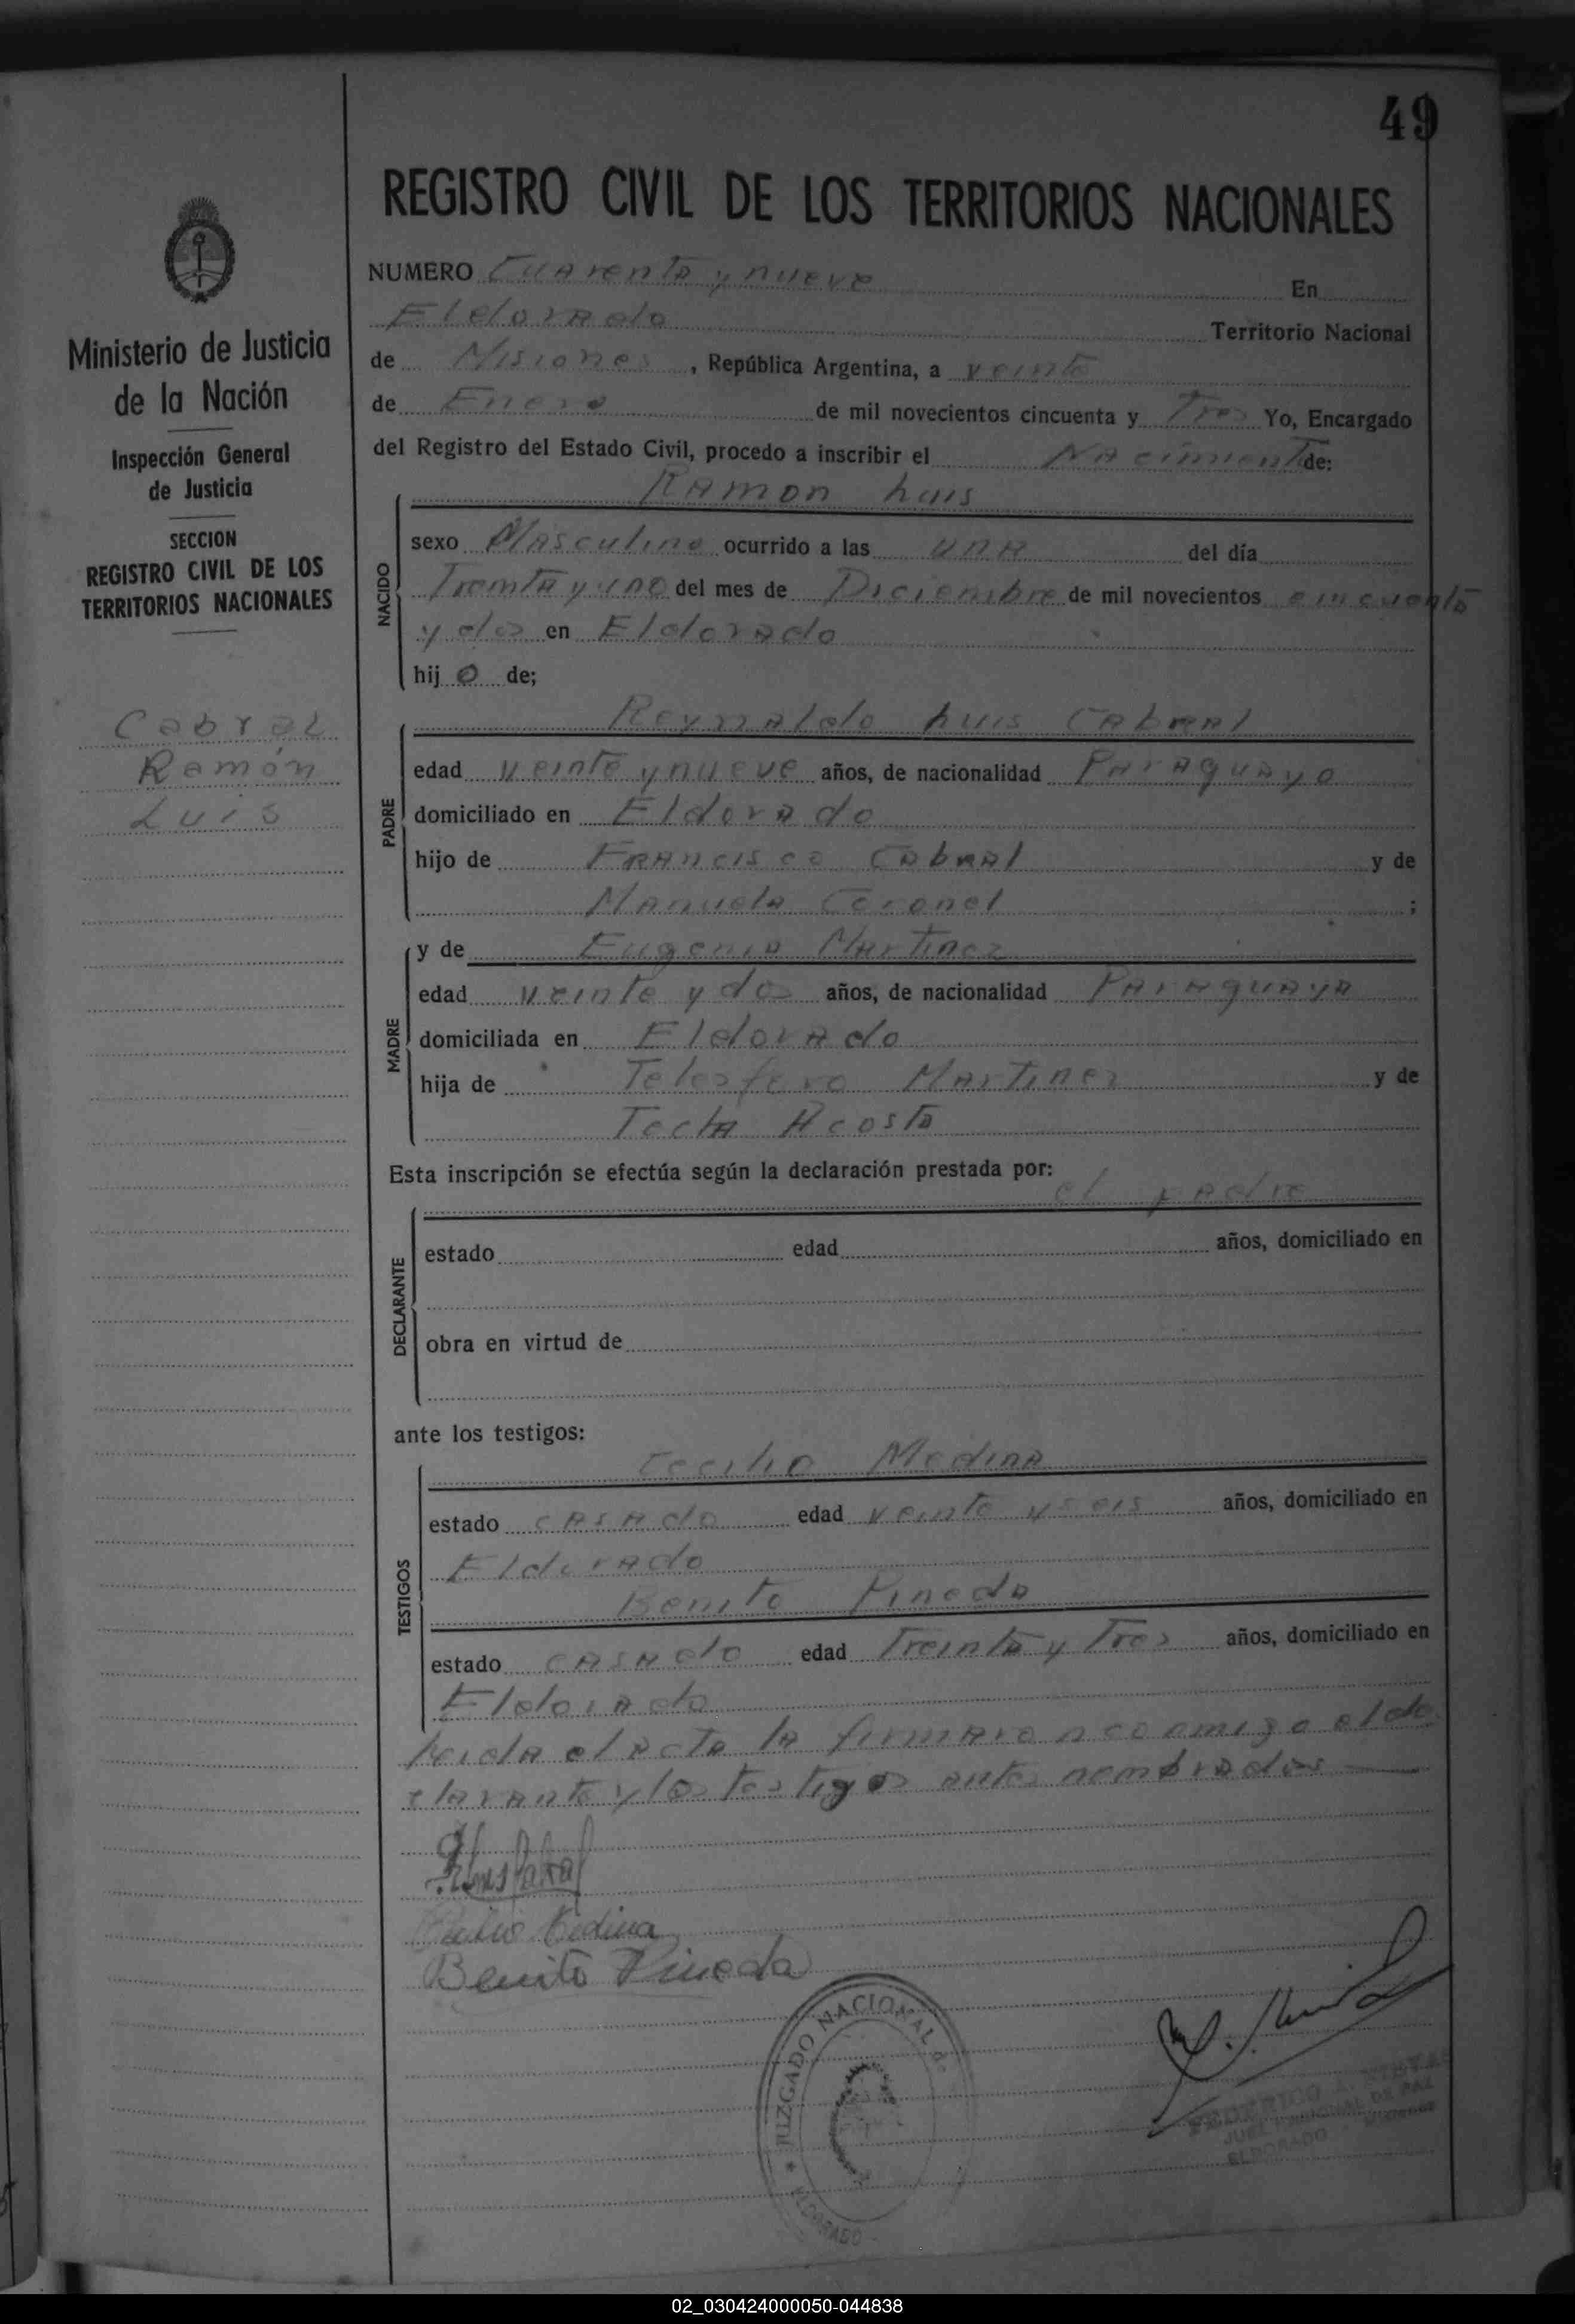 49
REGISTRO CIVIL DE LOS TERRITORIOS NACIONALES
Ministerio de Justicia
de la Nación
Inspección General
de Justicia
SECCION
REGISTRO CIVIL DE LOS
TERRITORIOS NACIONALES
Cabral
Ramón
Luis
NUMERO Cuarenta y nueve En
Eldorado Territorio Nacional
de Misiones, República Argentina, a veinte
de Enero de mil novecientos cincuenta y Tres Yo, Encargado
del Registro del Estado Civil, procedo a inscribir el Nacimiento de:
NACIDO
Ramon Luis
sexo Masculino ocurrido a las una del día
Treinta y uno del mes de Diciembre de mil novecientos cincuenta
y dos en Eldorado
hij o de;
PADRE
Reynaldo Luis Cabral
edad veinte y nueve años, de nacionalidad Paraguayo
domiciliado en Eldorado
hijo de Francisco Cabral y de
Manuela Coronel ;
MADRE
y de Eugenia Martinez
edad veinte y dos años, de nacionalidad Paraguaya
domiciliada en Eldorado
hija de Telesforo Martinez y de
Tecla Acosta
Esta inscripción se efectúa según la declaración prestada por:
el padre
DECLARANTE
estado edad años, domiciliado en
obra en virtud de
ante los testigos:
TESTIGOS
Cecilio Medina
estado casado edad veinte y seis años, domiciliado en
Eldorado
Benito Pineda
estado casado edad Treinta y Tres años, domiciliado en
Eldorado
Leida el acta la firmaron conmigo el de
clarante y los testigos antes nombrados
Luis Cabral
Cecilio Medina
Benito Pineda
JUZGADO NACIONAL de
ELDORADO
FEDERICO
JUEZ NACIONAL DE PAZ
ELDORADO - Misiones
02_030424000050-044838